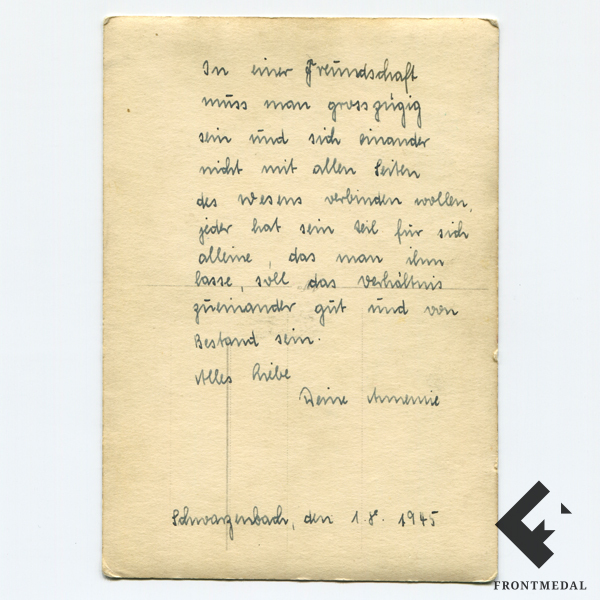 In einer Freundschaft
muss man grosszügig
sein und sich einander
nicht mit allen Seiten
des Wesens verbinden wollen,
jeder hat sein Teil für sich
alleine, das man ihm
lasse, soll das Verhältnis
zueinander gut und von
Bestand sein.
Alles Liebe
Deine Annemie
Schwarzenbach, den 1.8. 1945
FRONTMEDAL